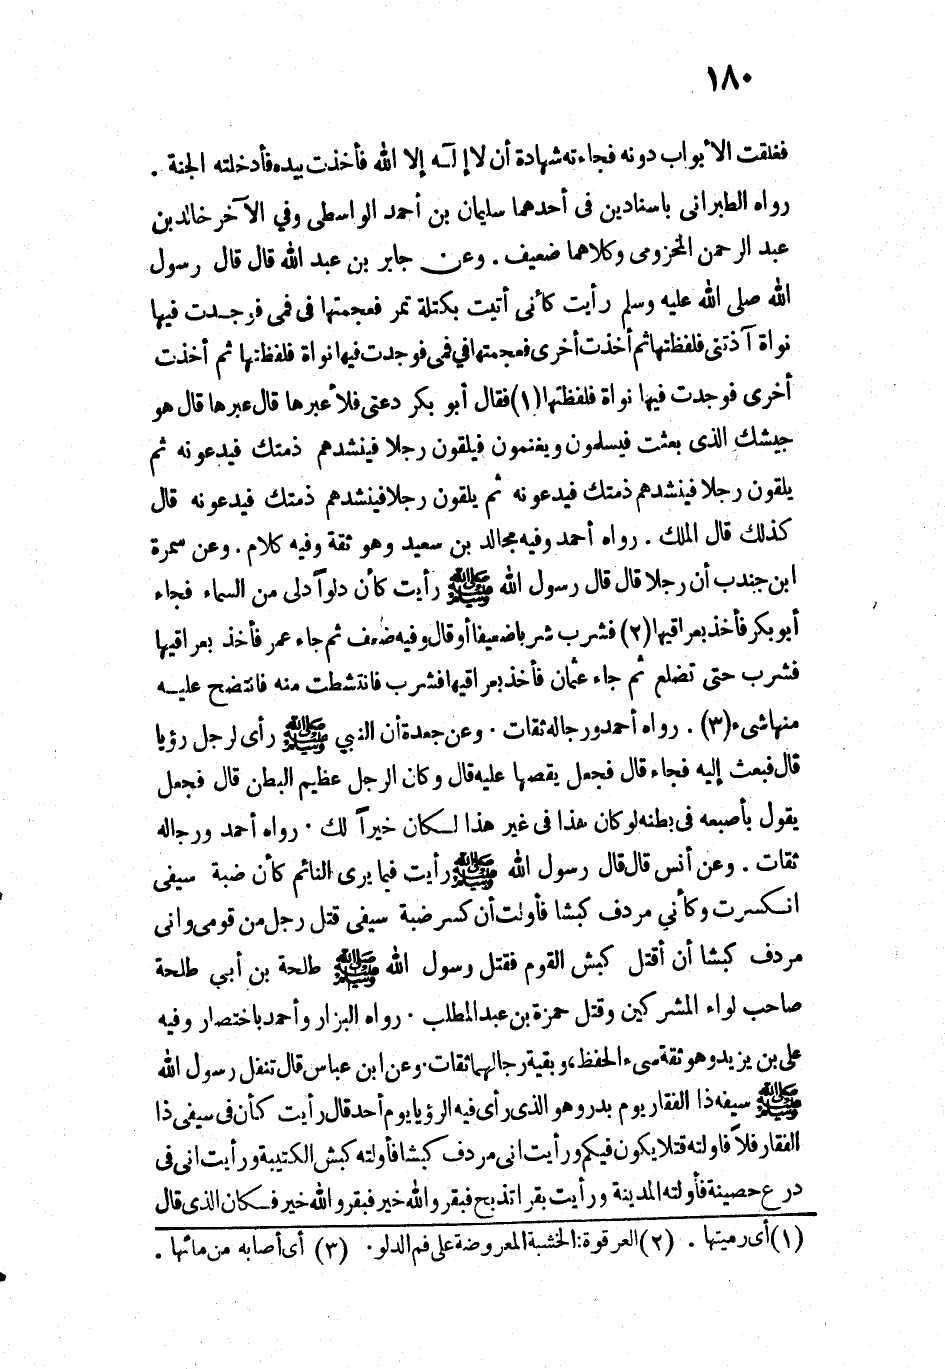 ١٨٠
فغلقت الأبواب دونه فجاءته شهادة أن لا إلٓه إلا الله فأخذت بيده فأدخلته الجنة .
رواه الطبرانى باسنادين فى أحدهما سليمان بن أحمد الواسطى وفي الآخر خالد بن
عبد الرحمن المخزومى وكلاهما ضعيف . وعن جابر بن عبد الله قال قال رسول
الله صلى الله عليه وسلم رأيت كأنى أتيت بكتلة تمر فعجمتها فى فمى فوجدت فيها
نواة آذتنى فلفظتها ثم أخذت أخرى فعجمتها في فمى فوجدت فيها نواة فلفظتها ثم أخذت
أخرى فوجدت فيها نواة فلفظتها(١) فقال أبو بكر دعنى فلأعبرها قال عبرها قال هو
جيشك الذى بعثت فيسلمون ويغنمون فيلقون رجلا فينشدهم ذمتك فيدعونه ثم
يلقون رجلا فينشدهم ذمتك فيدعونه ثم يلقون رجلا فينشدهم ذمتك فيدعونه قال
كذلك قال الملك . رواه أحمد وفيه مجالد بن سعيد وهو ثقة وفيه كلام . وعن سمرة
ابن جندب أن رجلا قال قال رسول الله ﷺ رأيت كأن دلواً دلى من السماء فجاء
أبو بكر فأخذ بعراقيها(٢) فشرب شربا ضعيفا أو قال وفيه ضعف ثم جاء عمر فأخذ بعراقيها
فشرب حتى تضلع ثم جاء عثمان فأخذ بعراقيها فشرب فانتشطت منه فانتضح عليه
منها شىء(٣) . رواه أحمد ورجاله ثقات . وعن جعدة أن النبي ﷺ رأى لرجل رؤيا
قال فبعث إليه فجاء قال فجعل يقصها عليه قال وكان الرجل عظيم البطن قال فجعل
يقول بأصبعه فى بطنه لو كان هذا فى غير هذا لكان خيراً لك . رواه أحمد ورجاله
ثقات . وعن أنس قال قال رسول الله ﷺ رأيت فيما يرى النائم كأن ضبة سيفى
انكسرت وكأني مردف كبشا فأولت أن كسر ضبة سيفى قتل رجل من قومى وانى
مردف كبشا أن أقتل كبش القوم فقتل رسول الله ﷺ طلحة بن أبي طلحة
صاحب لواء المشركين وقتل حمزة بن عبد المطلب . رواه البزار وأحمد باختصار وفيه
على بن يزيد وهو ثقة سىء الحفظ، وبقية رجالهما ثقات . وعن ابن عباس قال تنفل رسول الله
ﷺ سيفه ذا الفقار يوم بدر وهو الذى رأى فيه الرؤيا يوم أحد قال رأيت كأن فى سيفى ذا
الفقار فلاً فاولته قتلا يكون فيكم ورأيت انى مردف كبشا فأولته كبش الكتيبة ورأيت انى فى
درع حصينة فأولته المدينة ورأيت بقرا تذبح فبقر والله خير فبقر والله خير فكان الذى قال
(١) أى رميتها . (٢) العرقوة : الخشبة المعروضة على فم الدلو . (٣) أى أصابه من مائها .